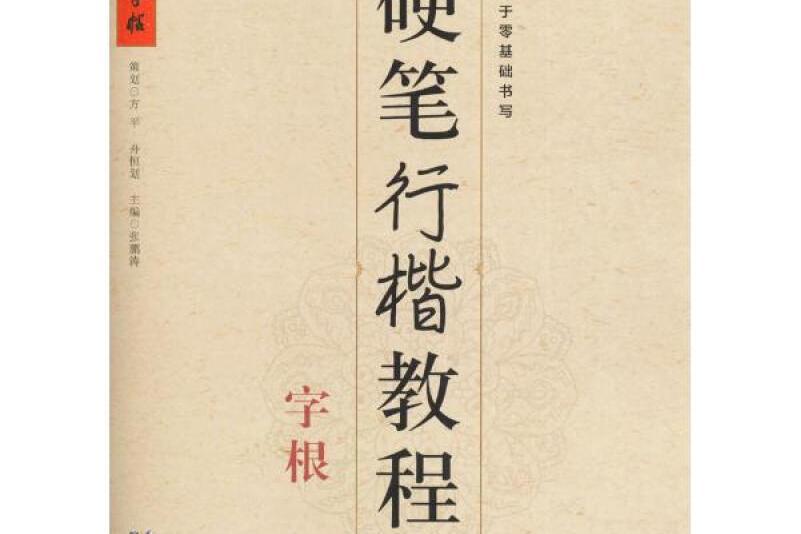 于零基础书写
硬笔行楷教程
字根
策划⊙方 平 舟恒划 主编⊙张鹏涛
帖